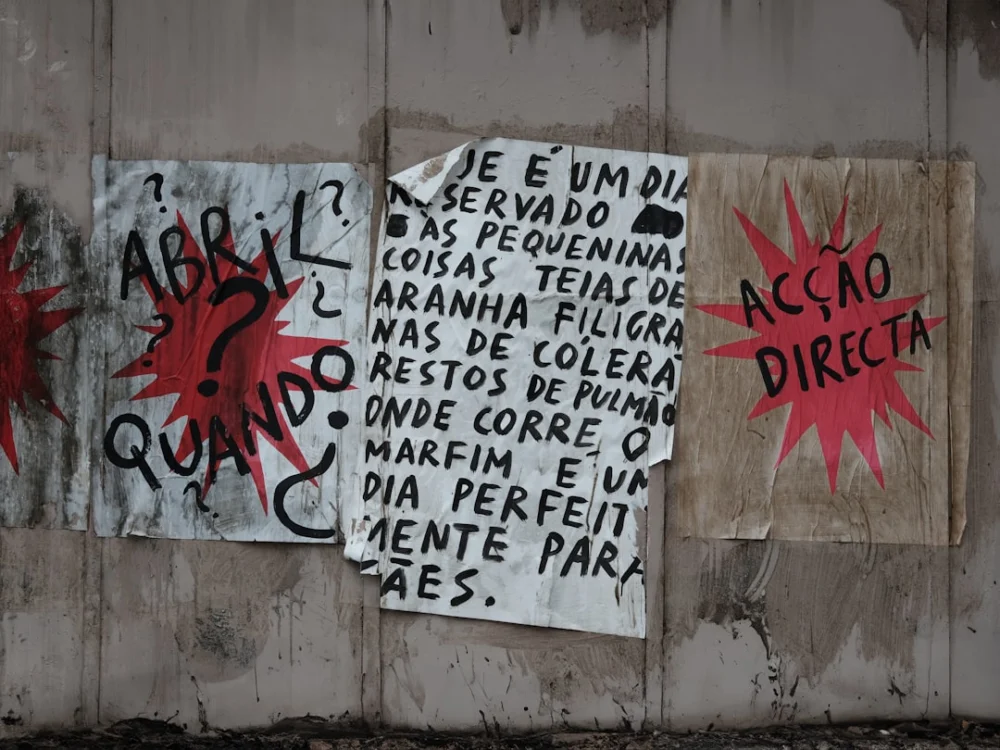 ?
?
ABRIL
?
?
?
QUANDO
?
?
JE É UM DIA
SERVADO
ÀS PEQUENINAS
COISAS TEIAS DE
ARANHA FILIGRA
NAS DE CÓLERA
RESTOS DE PULMÃO
ONDE CORRE O
MARFIM E UM
DIA PERFEIT
MENTE PARA
ÃES.
ACÇÃO
DIRECTA